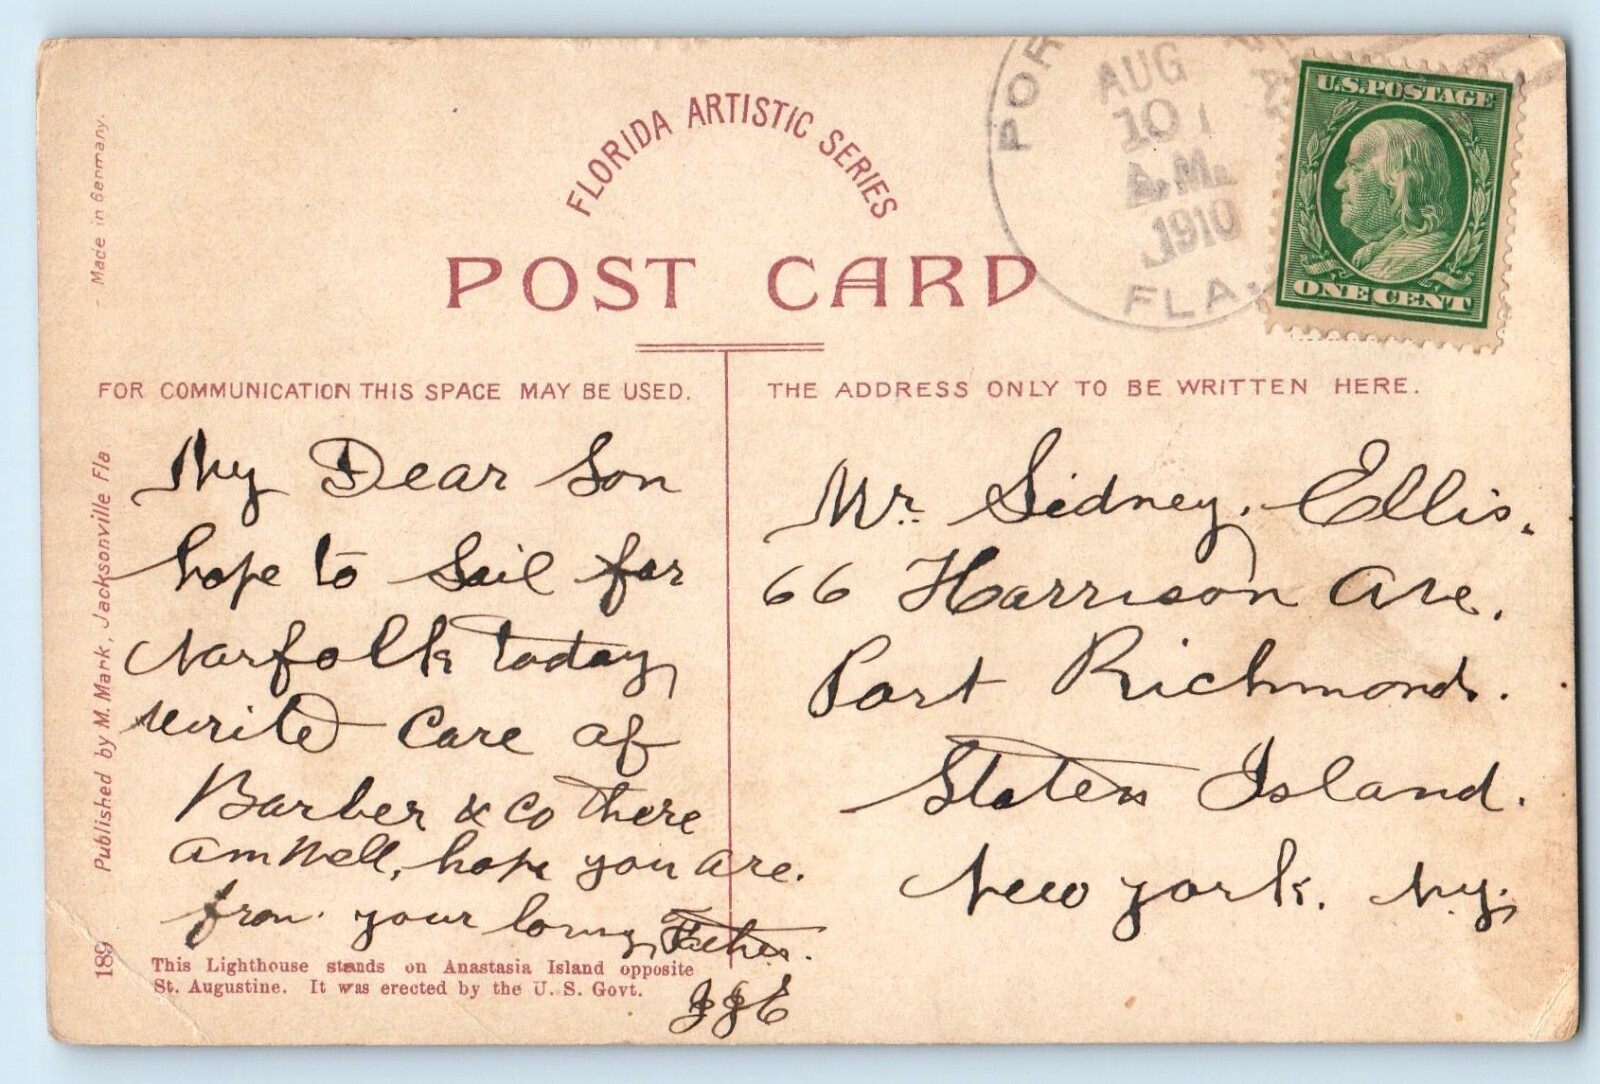 FLORIDA ARTISTIC SERIES
POST CARD
POR
AUG
10 1
A.M.
1910
FLA.
U.S. POSTAGE
ONE CENT
Made in Germany.
Published by M. Mark, Jacksonville Fla
189
FOR COMMUNICATION THIS SPACE MAY BE USED.
My Dear Son
hope to Sail for
Norfolk today
write Care of
Barber & Co there
am Well, hope you are.
from your loving Father.
J J E
This Lighthouse stands on Anastasia Island opposite
St. Augustine. It was erected by the U. S. Govt.
THE ADDRESS ONLY TO BE WRITTEN HERE.
Mr. Sidney. Ellis.
66 Harrison Ave.
Port Richmond.
Staten Island.
New York. N.Y.